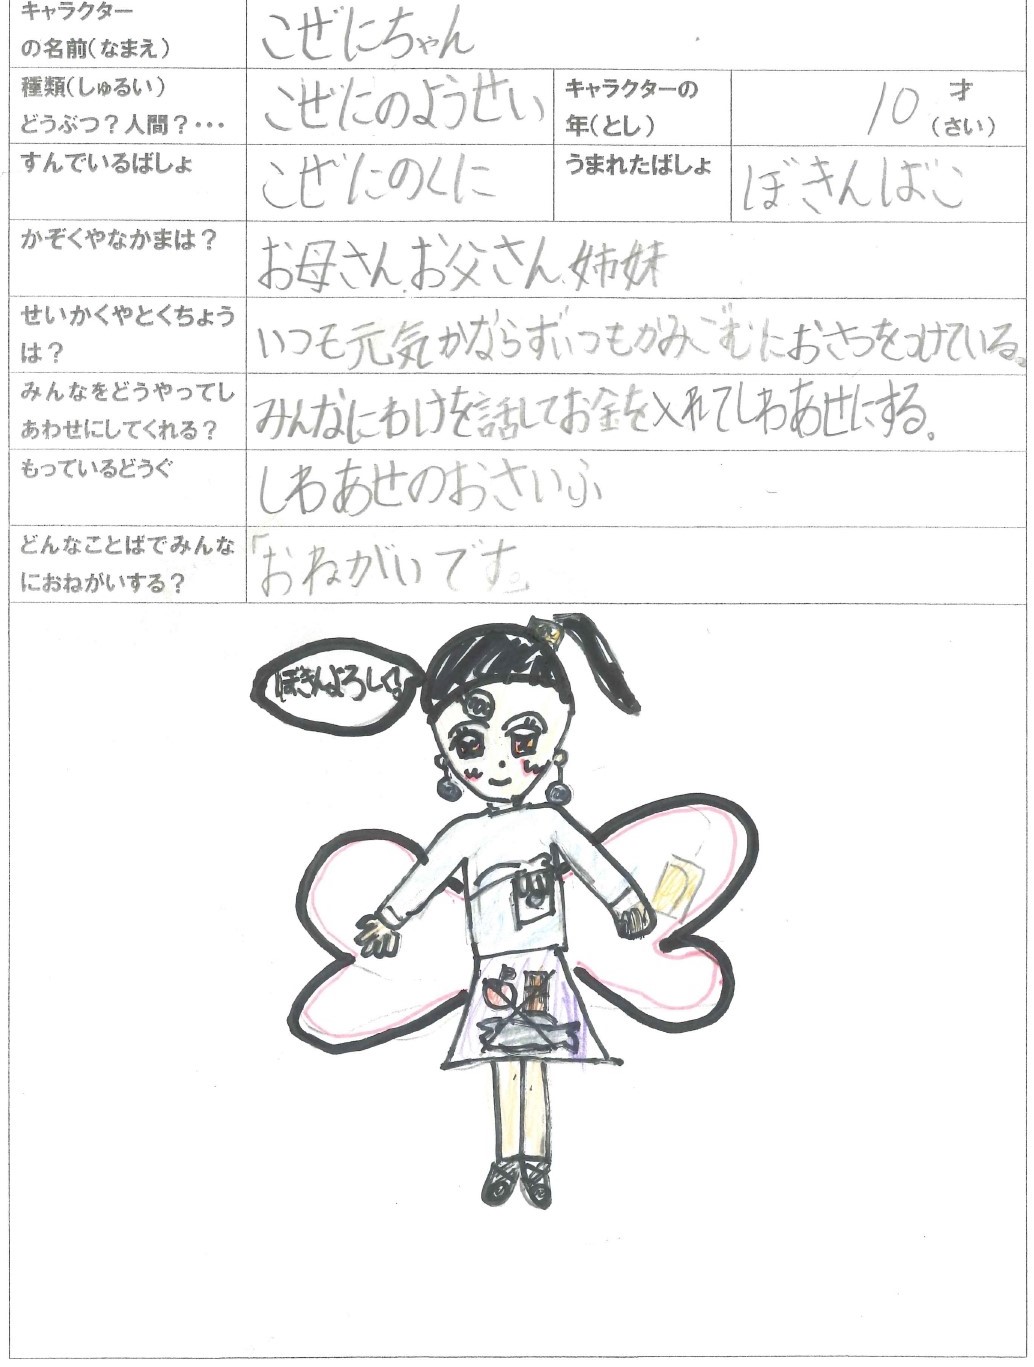 キャラクター
の名前(なまえ)
こぜにちゃん
種類(しゅるい)
どうぶつ?人間?・・・
こぜにのようせい
キャラクターの
年(とし)
10 才
(さい)
すんでいるばしょ
こぜにのくに
うまれたばしょ
ぼきんばこ
かぞくやなかまは?
お母さん、お父さん、姉妹
せいかくやとくちょう
は?
いつも元気かならずいつもかみごむにおさつをつけている。
みんなをどうやってし
あわせにしてくれる?
みんなにわけを話してお金を入れてしわあせにする。
もっているどうぐ
しわあせのおさいふ
どんなことばでみんな
におねがいする?
「おねがいです。」
ぼきんよろしく。